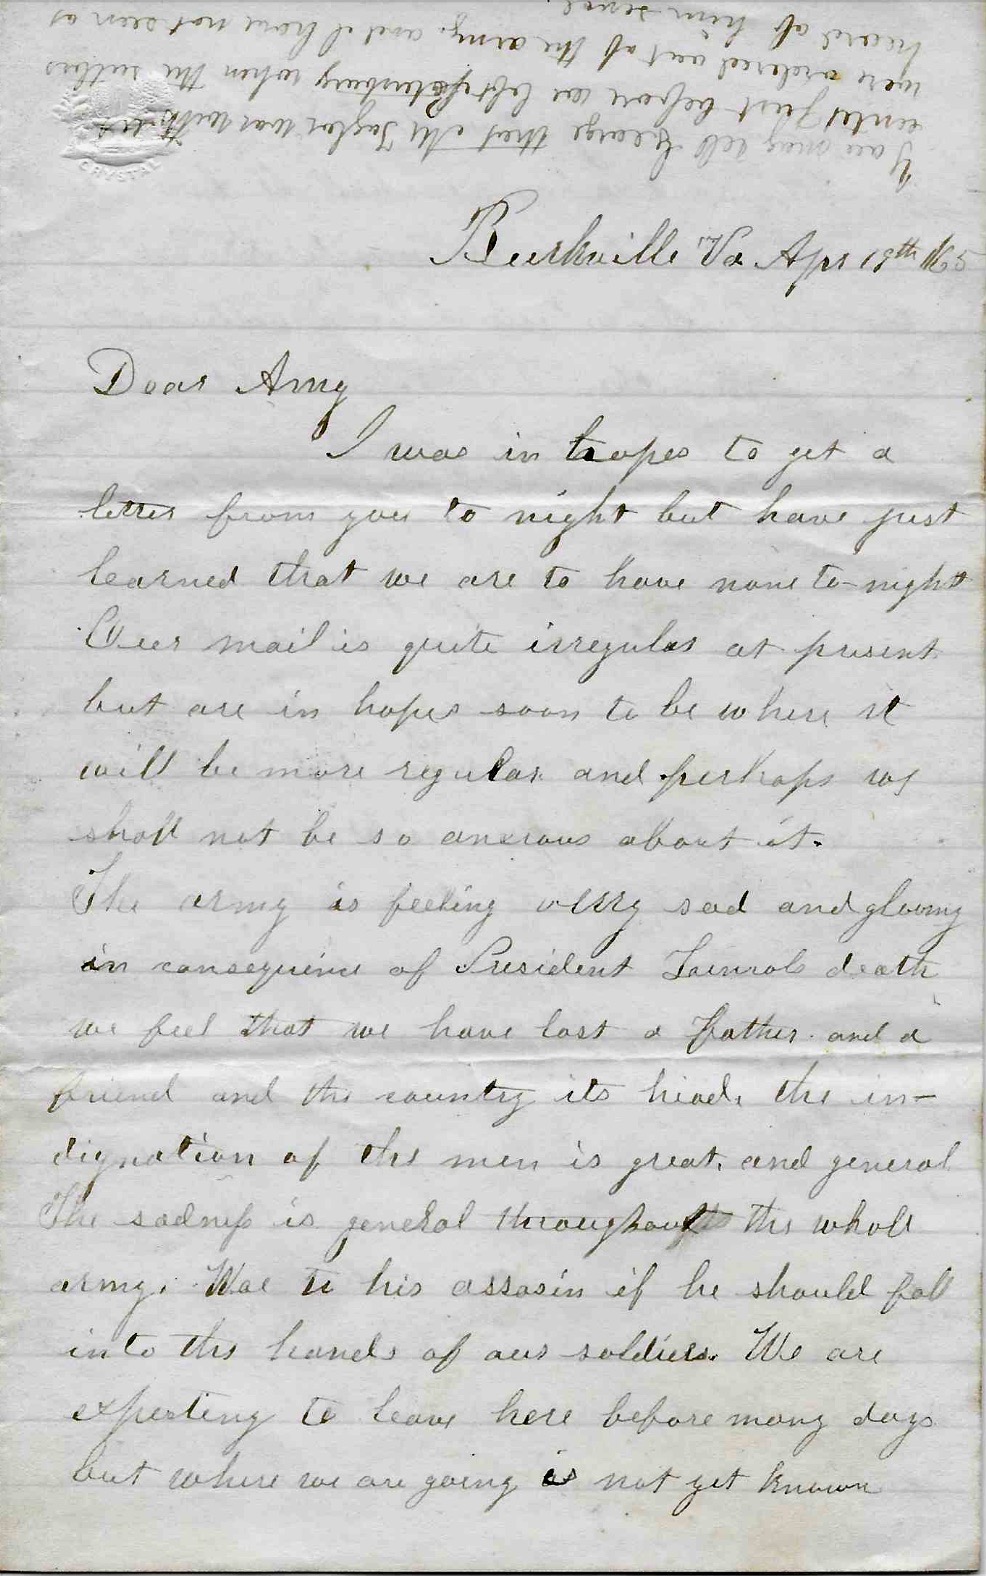 You may tell George that Mr Taylor was with us
until just before we left Petersburg when the sutlers
were ordered out of the army. and I have not seen or
heard of him since
Burkville Va Apr 19th 1865
Dear Amy
I was in hopes to get a
letter from you to night but have just
learned that we are to have none to-night
Our mail is quite irregular at present
but are in hopes soon to be where it
will be more regular. and perhaps we
shall not be so anxious about it.
The army is feeling verry sad and gloomy
in consequence of President Lincols death
we feel that we have lost a father. and a
friend and the country its head. the in-
dignation of the men is great. and general
The sadness is general throughout the whole
army. Woe to his assasin if he should fall
into the hands of our soldiers. We are
expecting to leave here before many days
but where we are going is not yet known